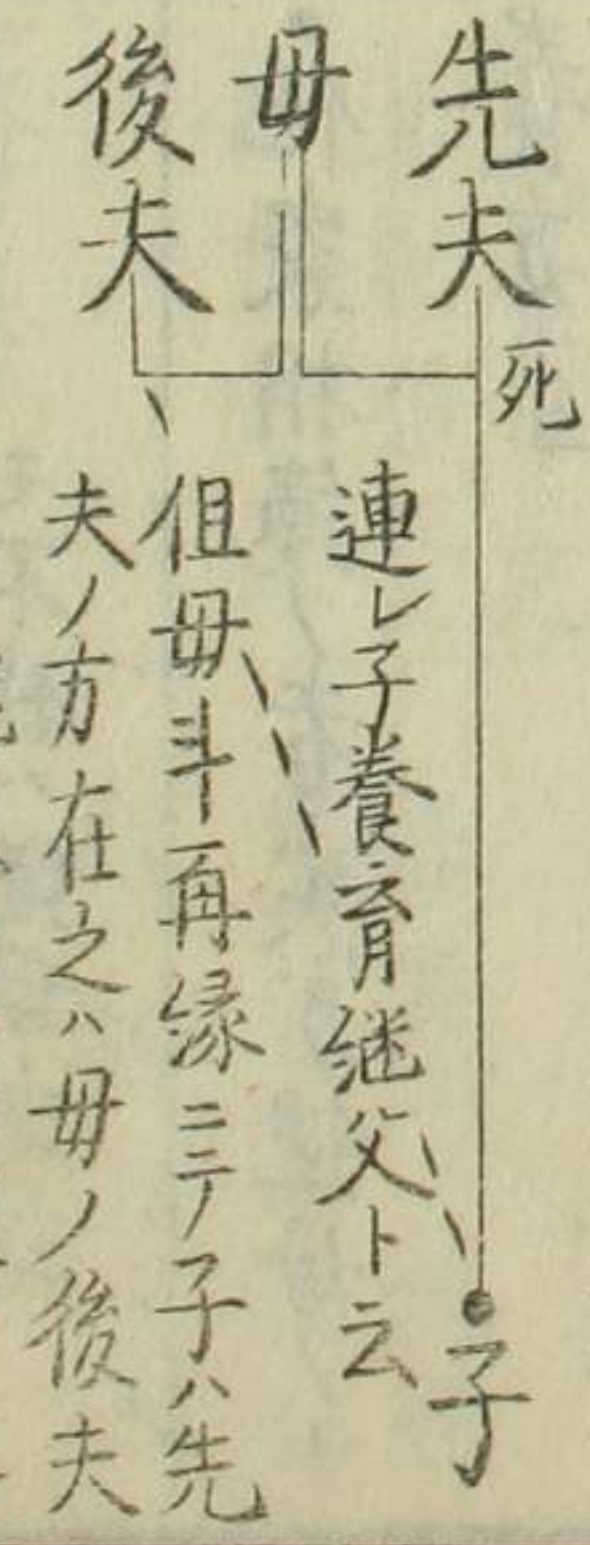 先夫
死
子
母
後夫
連レ子養育継父ト云
但母斗再縁ニテ子ハ先
夫ノ方在之ハ母ノ後夫